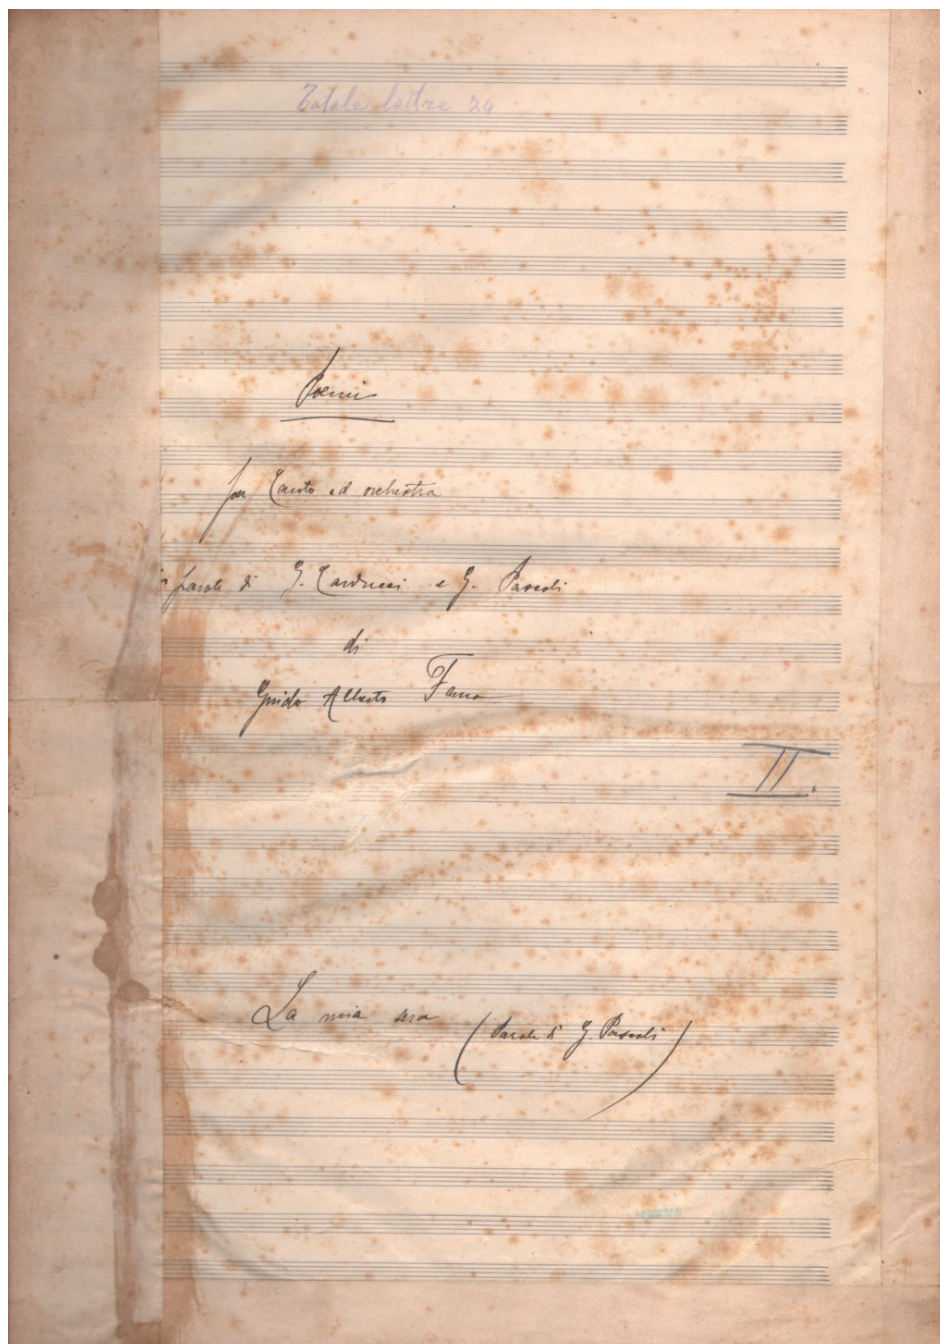 Totale lastre 24
Poemi
per Canto ed orchestra
parole di G. Carducci e G. Pascoli
di
Guido Alberto Fano
II.
La mia sera
(Parole di G. Pascoli)